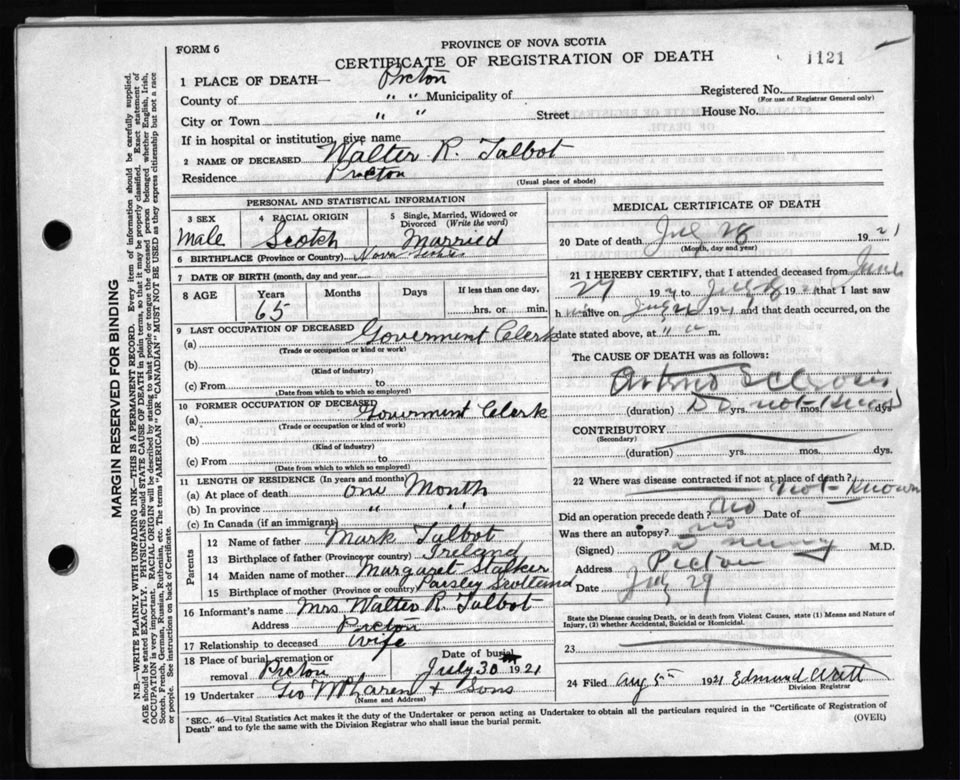 FORM 6
PROVINCE OF NOVA SCOTIA
CERTIFICATE OF REGISTRATION OF DEATH
1121
1 PLACE OF DEATH— Pictou
County of " " Municipality of
Registered No.
(For use of Registrar General only)
City or Town " " Street House No.
If in hospital or institution, give name
2 NAME OF DECEASED Walter R. Talbot
Residence Pictou
(Usual place of abode)
PERSONAL AND STATISTICAL INFORMATION
3 SEX
Male
4 RACIAL ORIGIN
Scotch
5 Single, Married, Widowed or Divorced (Write the word)
Married
6 BIRTHPLACE (Province or Country) Nova Scotia
7 DATE OF BIRTH (month, day and year)
8 AGE Years Months Days If less than one day,
65 hrs. or min.
9 LAST OCCUPATION OF DECEASED
(a) Goverment Clerk
(Trade or occupation or kind or work)
(b)
(Kind of industry)
(c) From to
(Date from which to which so employed)
10 FORMER OCCUPATION OF DECEASED
(a) Goverment Clerk
(Trade or occupation or kind of work)
(b)
(Kind of industry)
(c) From to
(Date from which to which so employed)
11 LENGTH OF RESIDENCE (In years and months)
(a) At place of death one Month
(b) In province " "
(c) In Canada (if an immigrant)
Parents
12 Name of father Mark Talbot
13 Birthplace of father (Province or country) Ireland
14 Maiden name of mother Margaret Stalker
15 Birthplace of mother (Province or country) Paisley Scotland
16 Informant's name Mrs Walter R. Talbot
Address Pictou
17 Relationship to deceased wife
18 Place of burial, cremation or removal Pictou
Date of burial
July 30th 1921
19 Undertaker Geo McLaren & Sons
(Name and Address)
MEDICAL CERTIFICATE OF DEATH
20 Date of death July 28 1921
(Month, day and year)
21 I HEREBY CERTIFY, that I attended deceased from June
29 192 to July 192 that I last saw
h alive on July 1921 and that death occurred, on the
date stated above, at m.
The CAUSE OF DEATH was as follows:
Arterio Sclerosis
(duration) Do yrs. not mos. know dys.
CONTRIBUTORY
(Secondary)
(duration) yrs. mos. dys.
22 Where was disease contracted if not at place of death? not-known
Did an operation precede death? No Date of
Was there an autopsy? no
(Signed) M.D.
Address Pictou
Date July 29
State the Disease causing Death, or in death from Violent Causes, state (1) Means and Nature of
Injury, (2) whether Accidental, Suicidal or Homicidal.
23
24 Filed Aug 5th 1921 Edmund
Division Registrar
*SEC. 46—Vital Statistics Act makes it the duty of the Undertaker or person acting as Undertaker to obtain all the particulars required in the "Certificate of Registration of
Death" and to fyle the same with the Division Registrar who shall issue the burial permit.
(OVER)
MARGIN RESERVED FOR BINDING
N.B.—WRITE PLAINLY WITH UNFADING INK—THIS IS A PERMANENT RECORD. Every item of information should be carefully supplied.
AGE should be stated EXACTLY. PHYSICIANS should STATE CAUSE OF DEATH in plain terms, so that it may be properly classified. Exact statement of
OCCUPATION is very important. RACIAL ORIGIN will be described by stating to what people or tongue the deceased person belonged whether English, Irish,
Scotch, French, German, Russian, Ruthenian, etc. The terms "AMERICAN" OR "CANADIAN" MUST NOT BE USED as they express citizenship but not a race
or people. See instructions on back of Certificate.